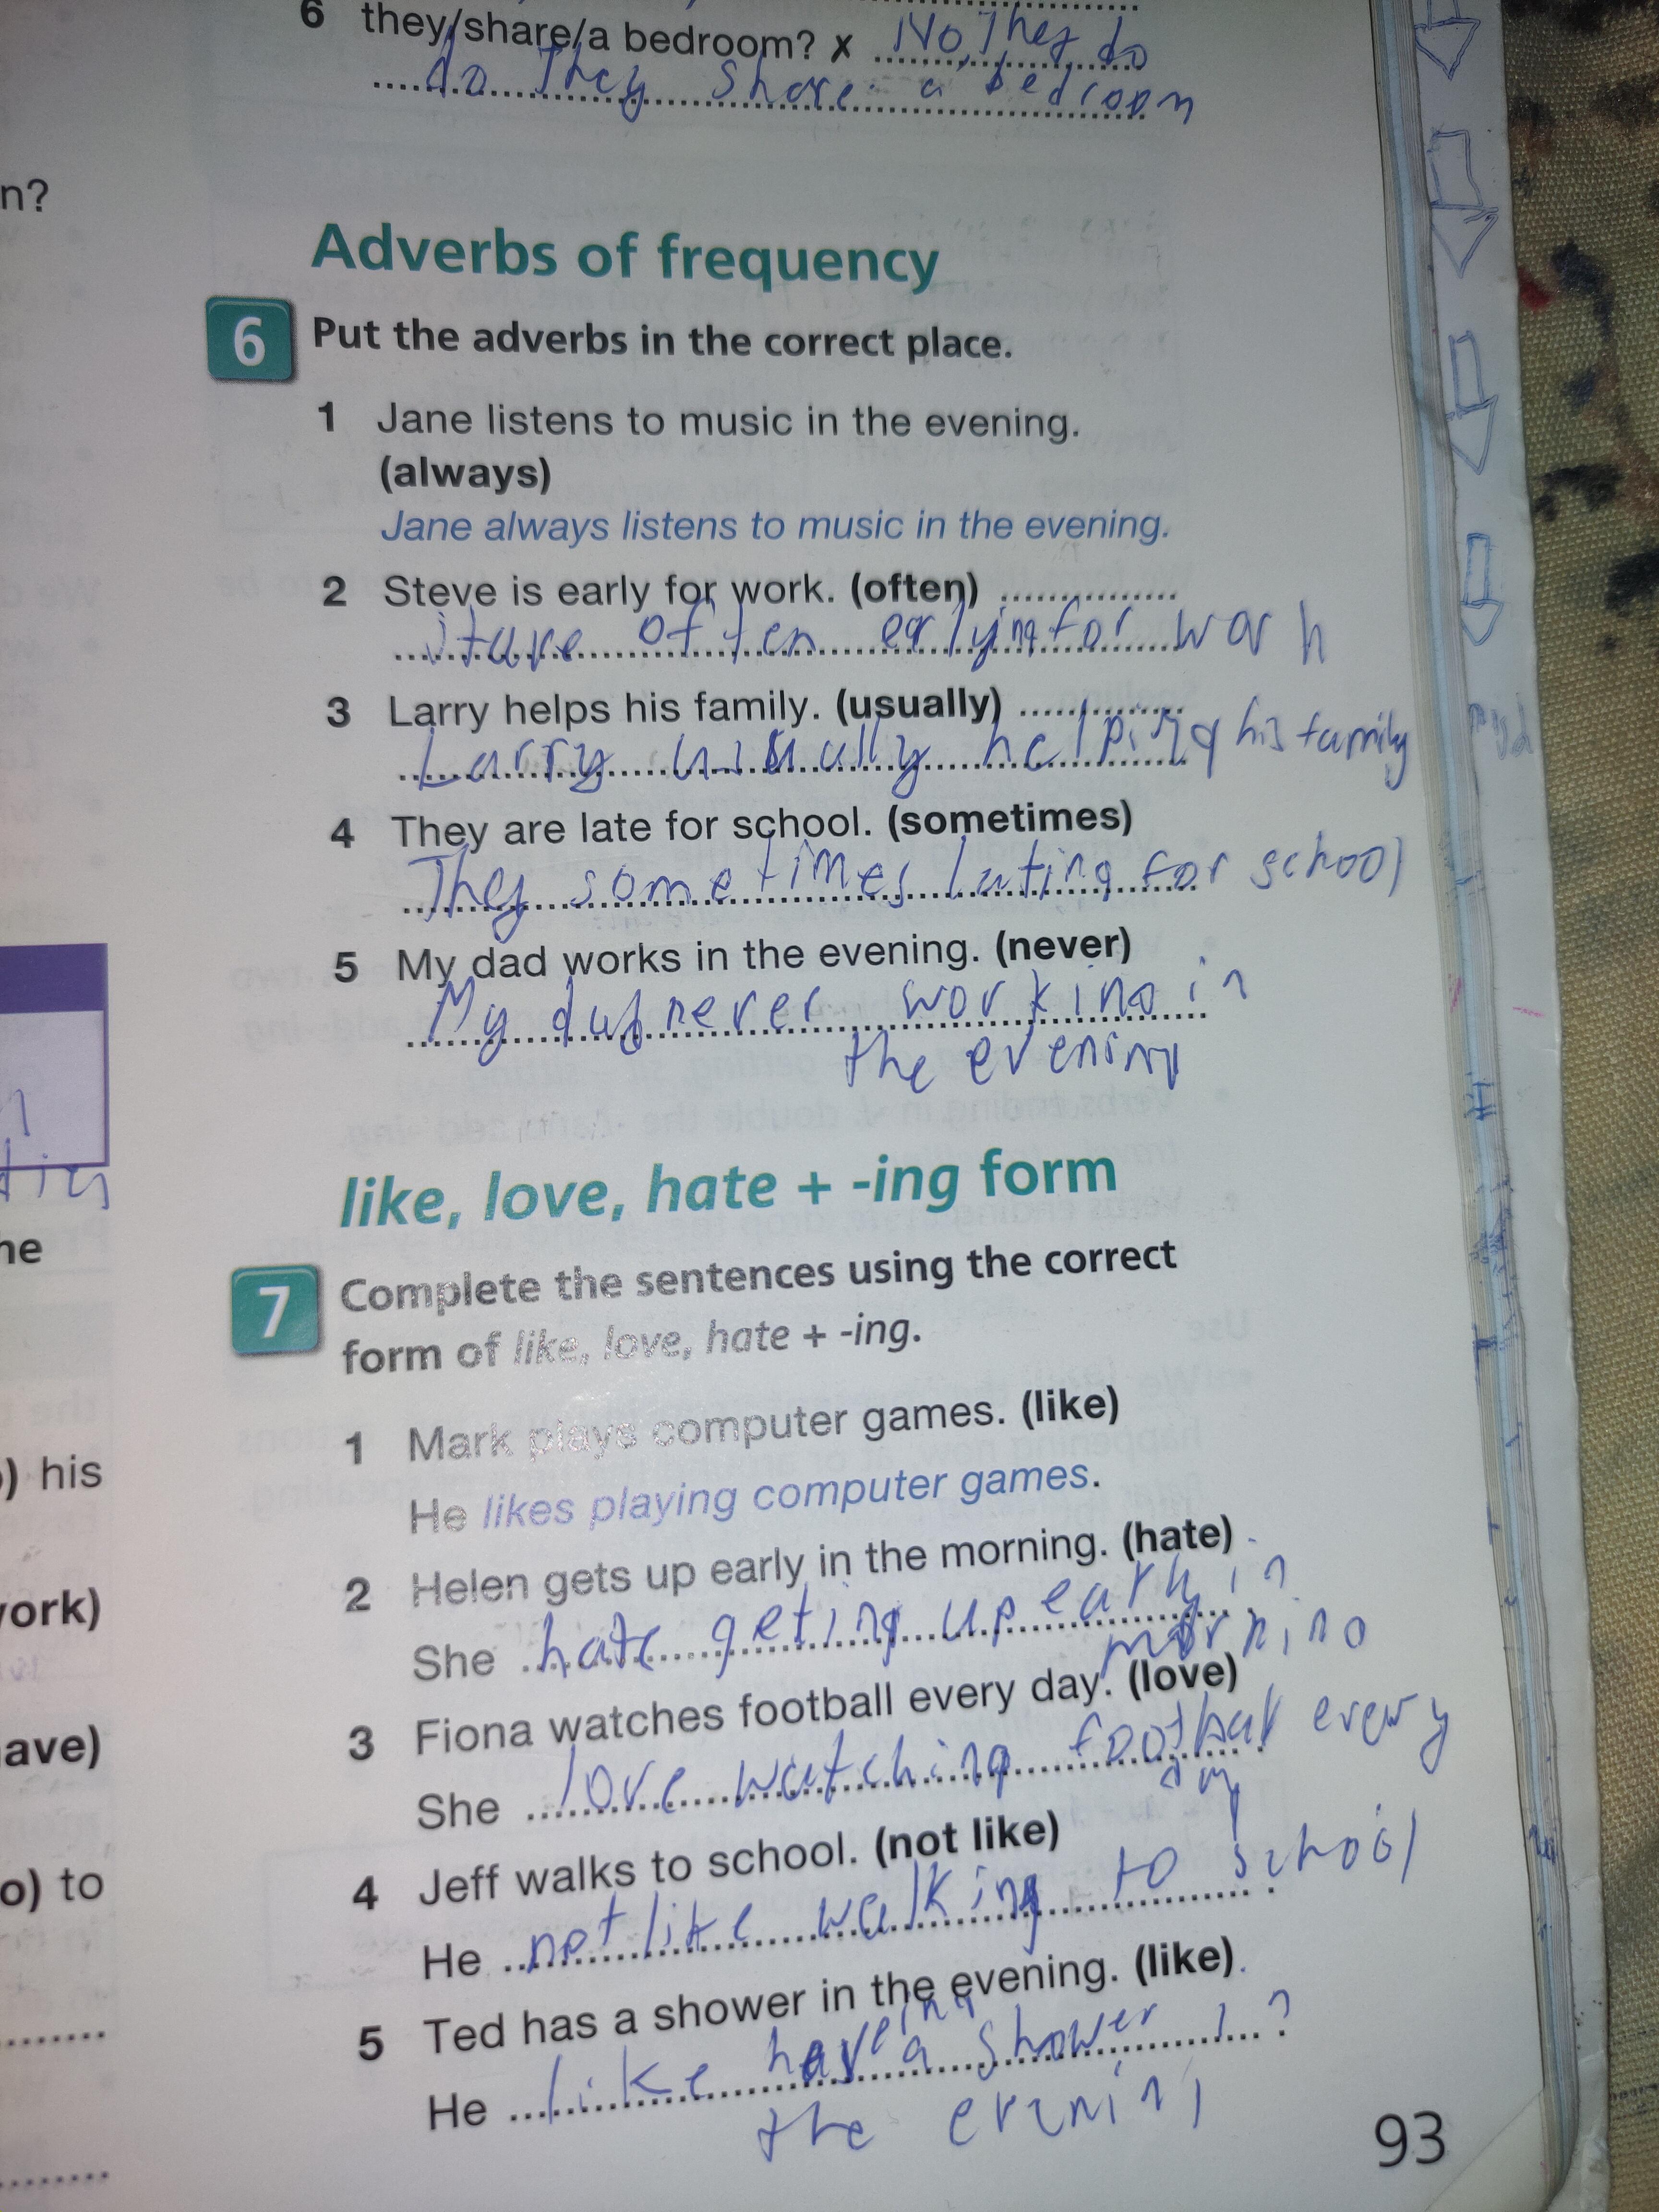 6 they/share/a bedroom? x No, They do
do They share a bedroom
n?
Adverbs of frequency
6 Put the adverbs in the correct place.
1 Jane listens to music in the evening.
(always)
Jane always listens to music in the evening.
2 Steve is early for work. (often)
often earlying for work
3 Larry helps his family. (usually)
Larry usually helping his family
4 They are late for school. (sometimes)
They sometimes lating for school
5 My dad works in the evening. (never)
My never working in
the evening
he
like, love, hate + -ing form
7 Complete the sentences using the correct
form of like, love, hate + -ing.
1 Mark plays computer games. (like)
) his
He likes playing computer games.
2 Helen gets up early in the morning. (hate)
ork)
She hate geting up early in
morning
3 Fiona watches football every day. (love)
ave)
She love watching football every
day
4 Jeff walks to school. (not like)
o) to
He not like walking to school
5 Ted has a shower in the evening. (like)
He like haveing a shower in
the evening
93